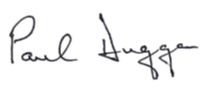 Paul Duggan